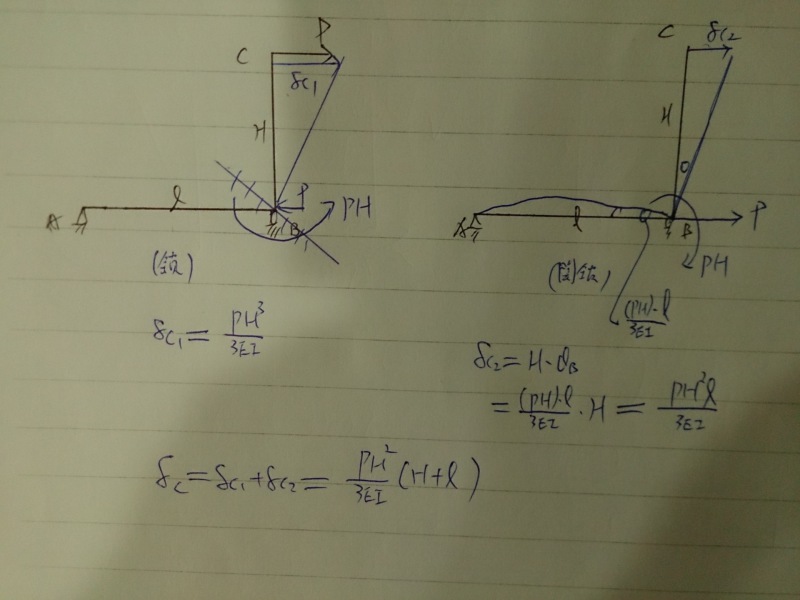 C P
δC₁
H
l P
A B PH
(鎖)
δC₁ = PH³/3EI
C δC₂
H
θ
A l B P
PH
(開鎖)
(PH)·l/3EI
δC₂ = H·θB
= (PH)·l/3EI · H = PH²l/3EI
δC = δC₁ + δC₂ = PH²/3EI (H+l)